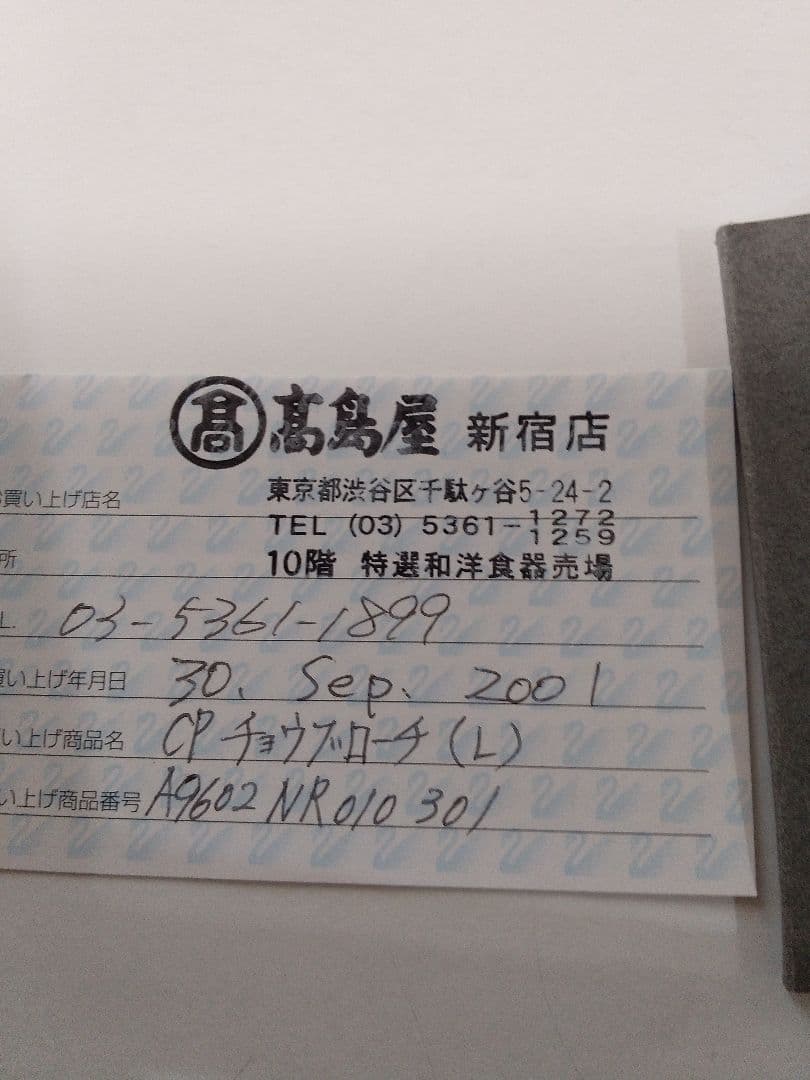 髙 髙島屋 新宿店
買い上げ店名 東京都渋谷区千駄ヶ谷5-24-2
TEL (03) 5361-1272
1259
所 10階 特選和洋食器売場
L. 03-5361-1899
買い上げ年月日 30. Sep. 2001
い上げ商品名 CPチョウブローチ(L)
い上げ商品番号 A9602 NR010 301